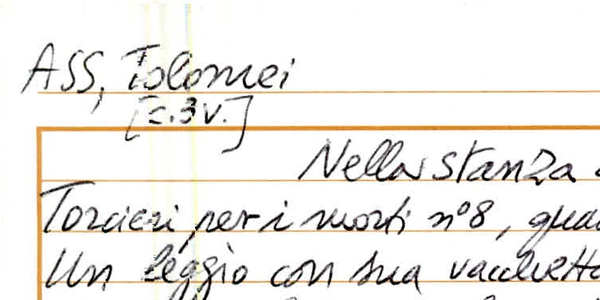 ASS, Tolomei
[c.3v.]
Nella stanza
Torcieri, per i morti n°8,
Un leggio con sua vacchetta